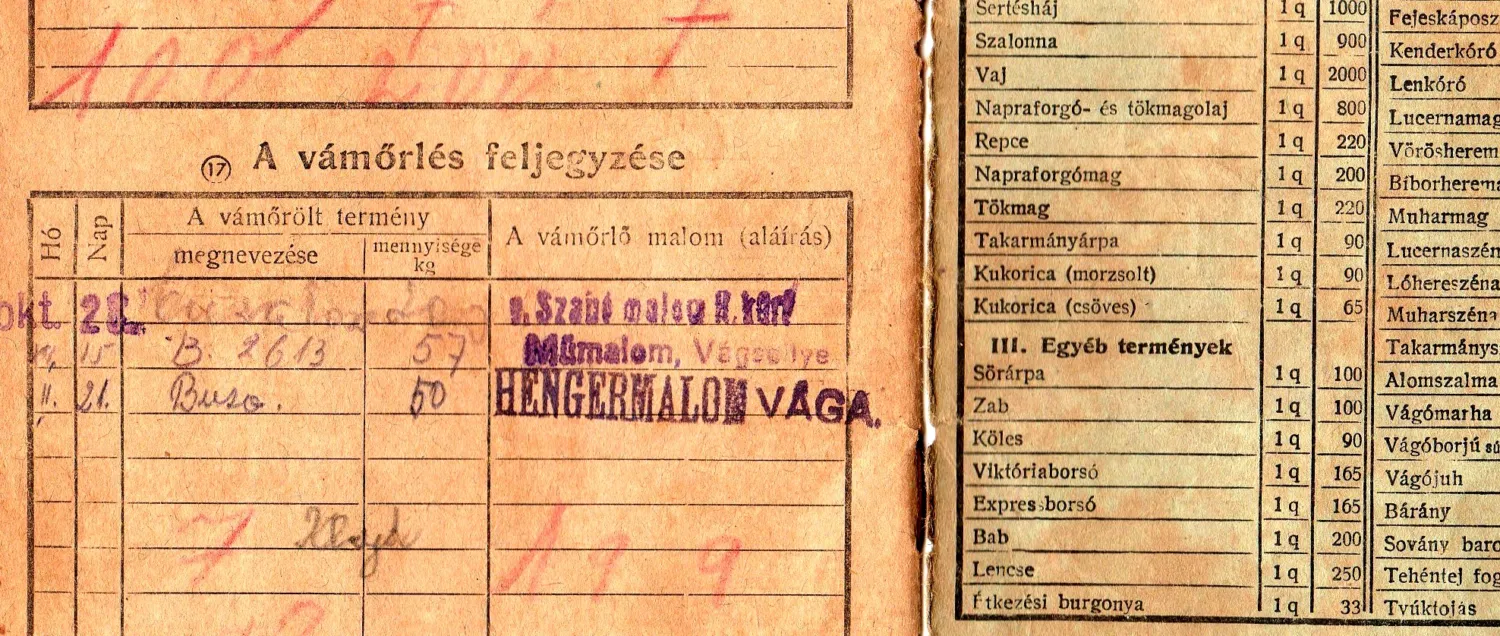 100 200
17 A vámőrlés feljegyzése
Hó Nap A vámőrölt termény A vámőrlő malom (aláírás)
megnevezése mennyisége kg
okt. 28. malom
15 B. 2613 57 Műmalom, Vágsellye
II. 21. Buza. 50 HENGERMALOM VÁGA.
7
199
Sertésháj 1 q 1000
Szalonna 1 q 900
Vaj 1 q 2000
Napraforgó- és tökmagolaj 1 q 800
Repce 1 q 220
Napraforgómag 1 q 200
Tökmag 1 q 220
Takarmányárpa 1 q 90
Kukorica (morzsolt) 1 q 90
Kukorica (csöves) 1 q 65
III. Egyéb termények
Sörárpa 1 q 100
Zab 1 q 100
Köles 1 q 90
Viktóriaborsó 1 q 165
Expressborsó 1 q 165
Bab 1 q 200
Lencse 1 q 250
Étkezési burgonya 1 q 33
Fejeskáposz
Kenderkóró
Lenkóró
Lucernamag
Vörösherem
Bíborherema
Muharmag
Lucernaszén
Lóhereszéna
Muharszéna
Takarmánys
Alomszalma
Vágómarha
Vágóborjú sú
Vágójuh
Bárány
Sovány baro
Tehéntej fog
Tyúktojás